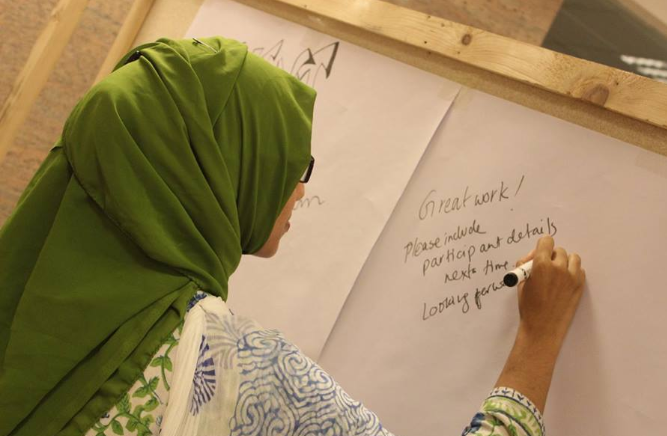 Great work!
Please include
participant details
next time
Looking